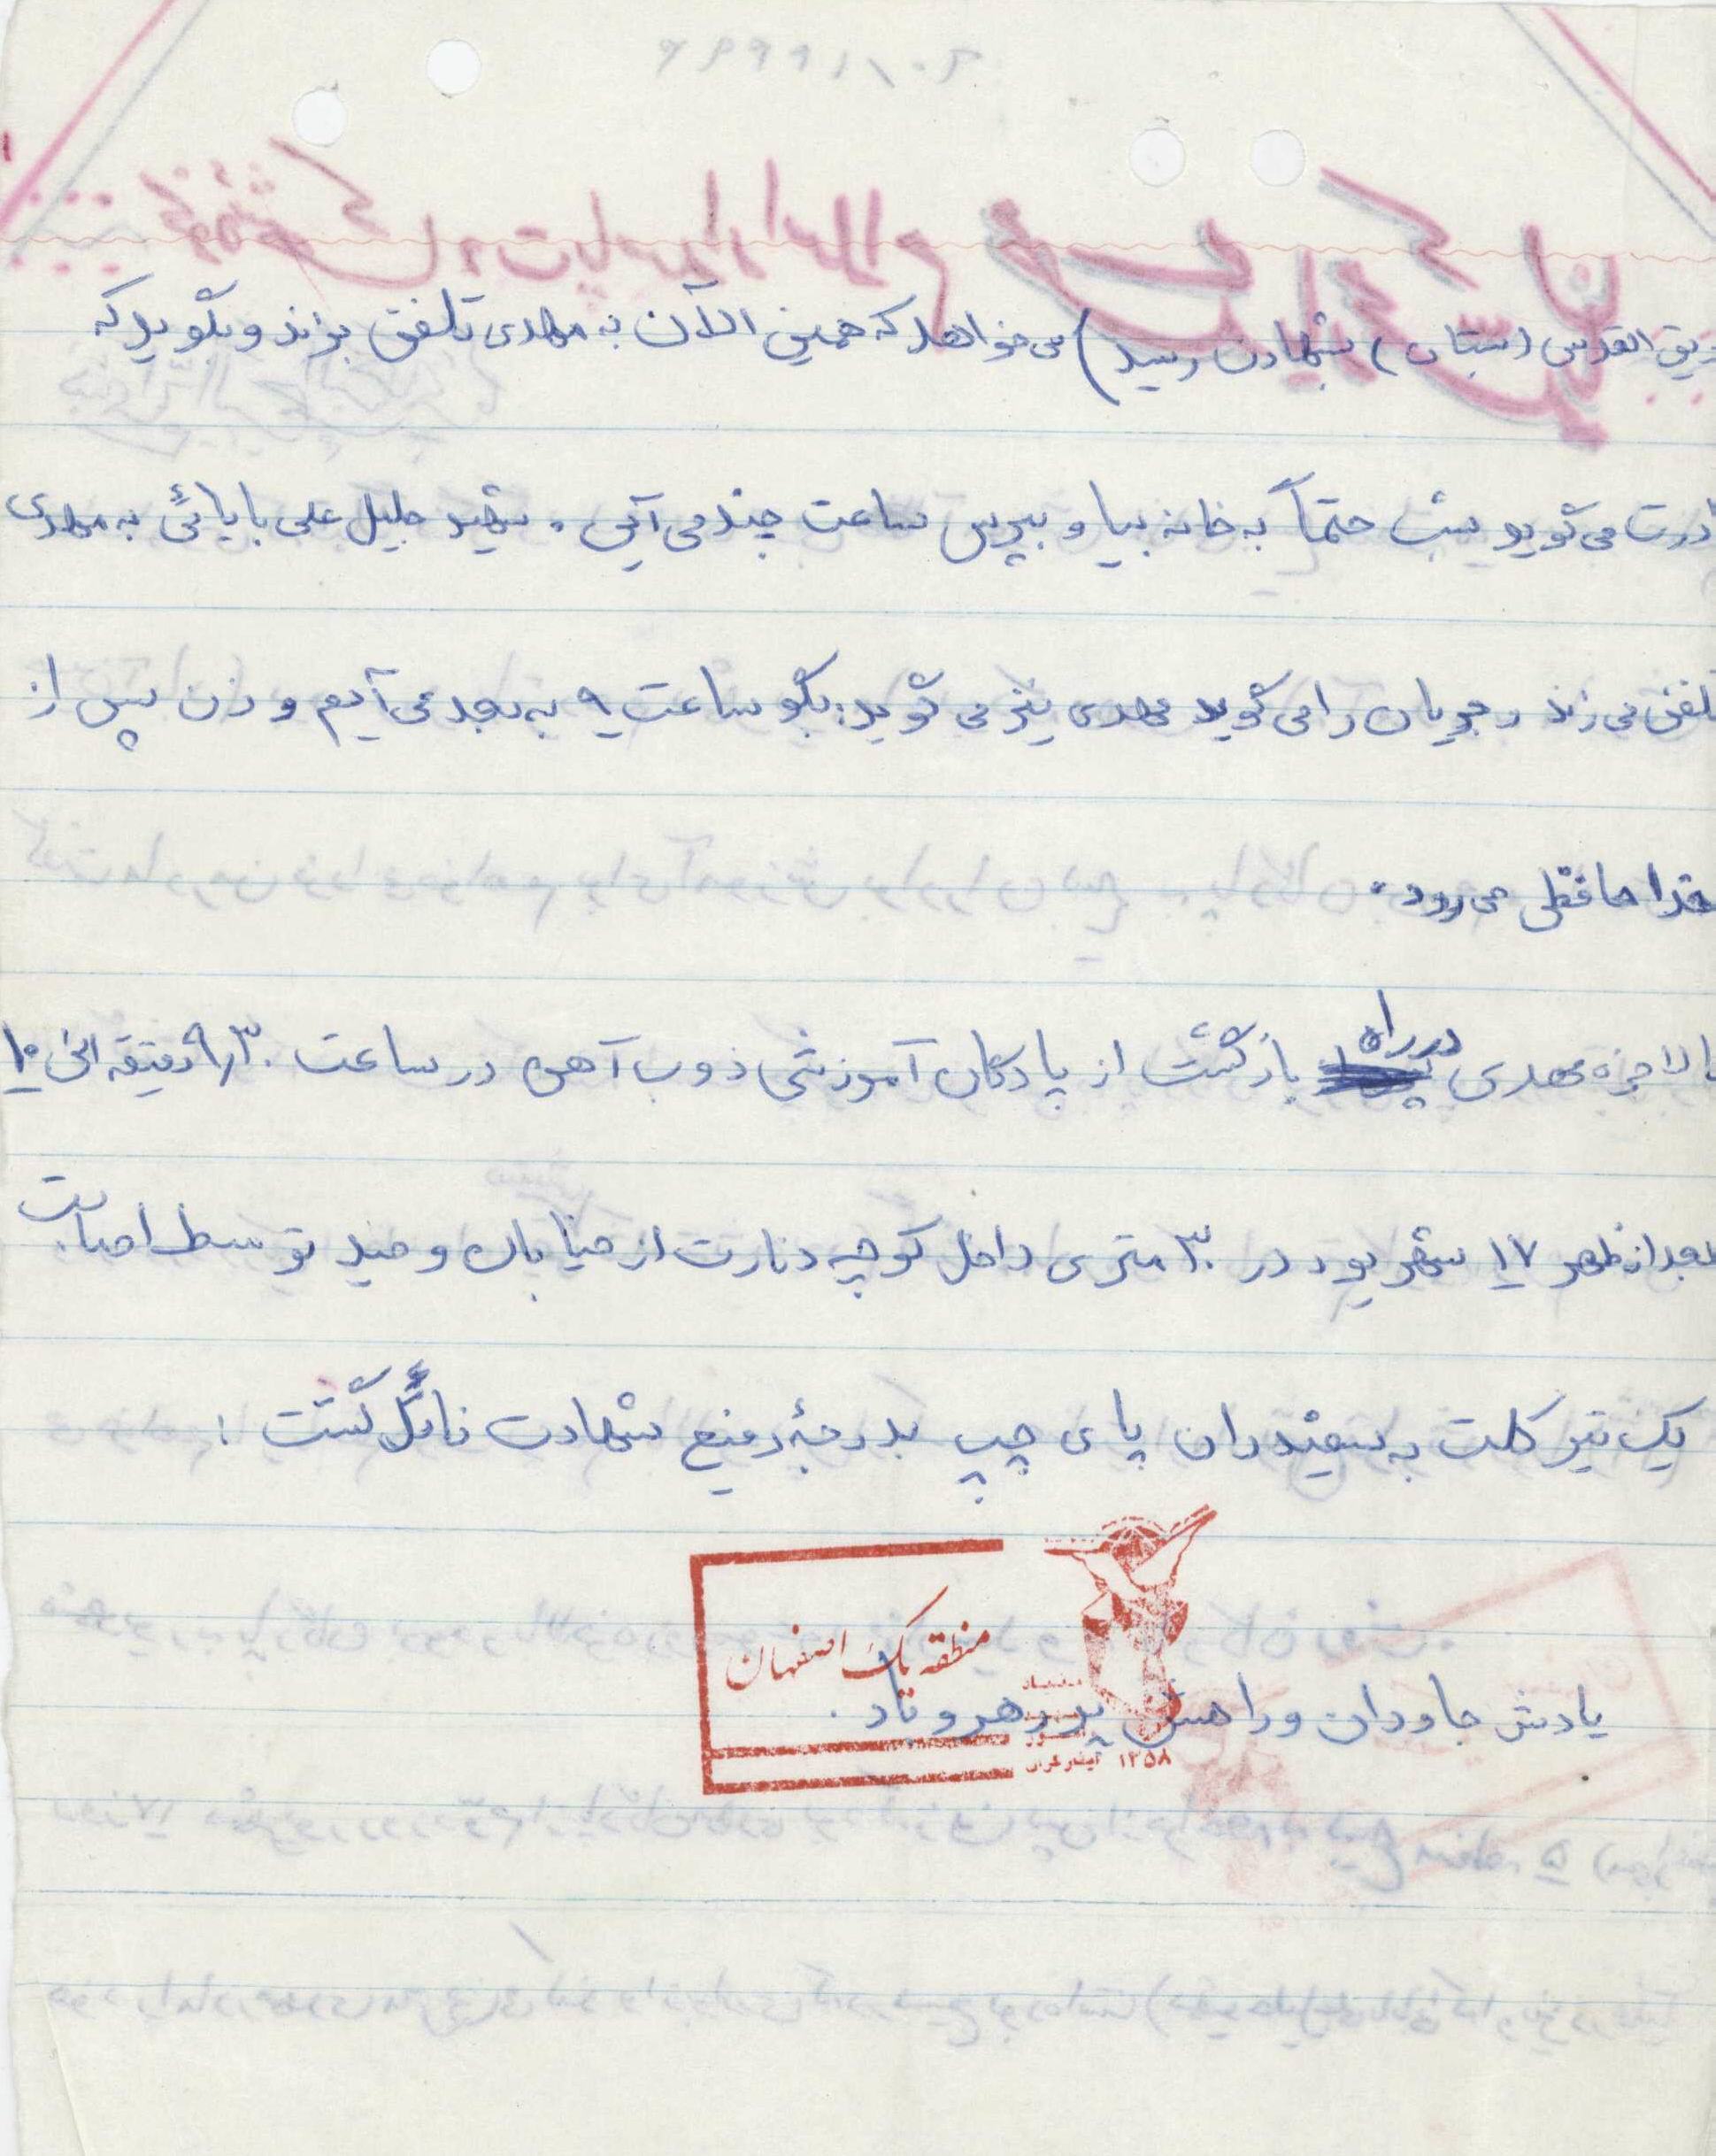 القدس (بستان) بشهادت رسید) می‌خواهد که همین الآن به مهدی تلفن بزند و بگوید که
می‌گوید شب حتماً به خانه بیا و بپرس ساعت چند می‌آیی. شهید جلیل علی بابائی به مهدی
تلفن می‌زند و جریان را می‌گوید مهدی نیز می‌گوید: بگو ساعت ۹ به بعد می‌آیم و زن پس از
خدا حافظی می‌رود.
بالاخره مهدی در راه بازگشت از پادگان آموزشی ذوب آهن در ساعت ۹/۳۰ دقیقه الی ۱۰
بعد از ظهر ۱۷ شهریور در ۳۰ متری داخل کوچه دنارت از خیابان وحید توسط اصابت
یک تیر کلت به سفیدران پای چپ بدرجهٔ رفیع شهادت نائل گشت :
منطقه یک اصفهان
یادش جاودان و راهش پر رهرو باد .
۱۳۵۸